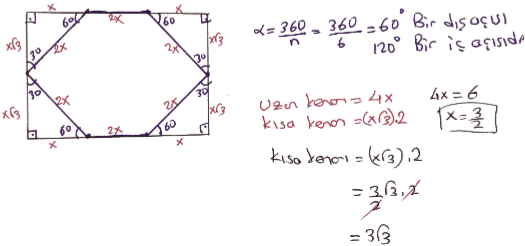 x 2x x
60 60
x√3 2x 2x x√3
30 30
30 30
x√3 2x 2x x√3
60 60
x 2x x
α = 360/n = 360/6 = 60° Bir dış açısı
120° Bir iç açısıdır
Uzun kenar = 4x
Kısa kenar = (x√3).2
4x = 6
x = 3/2
Kısa kenarı = (x√3).2
= 3/2 √3.2
= 3√3